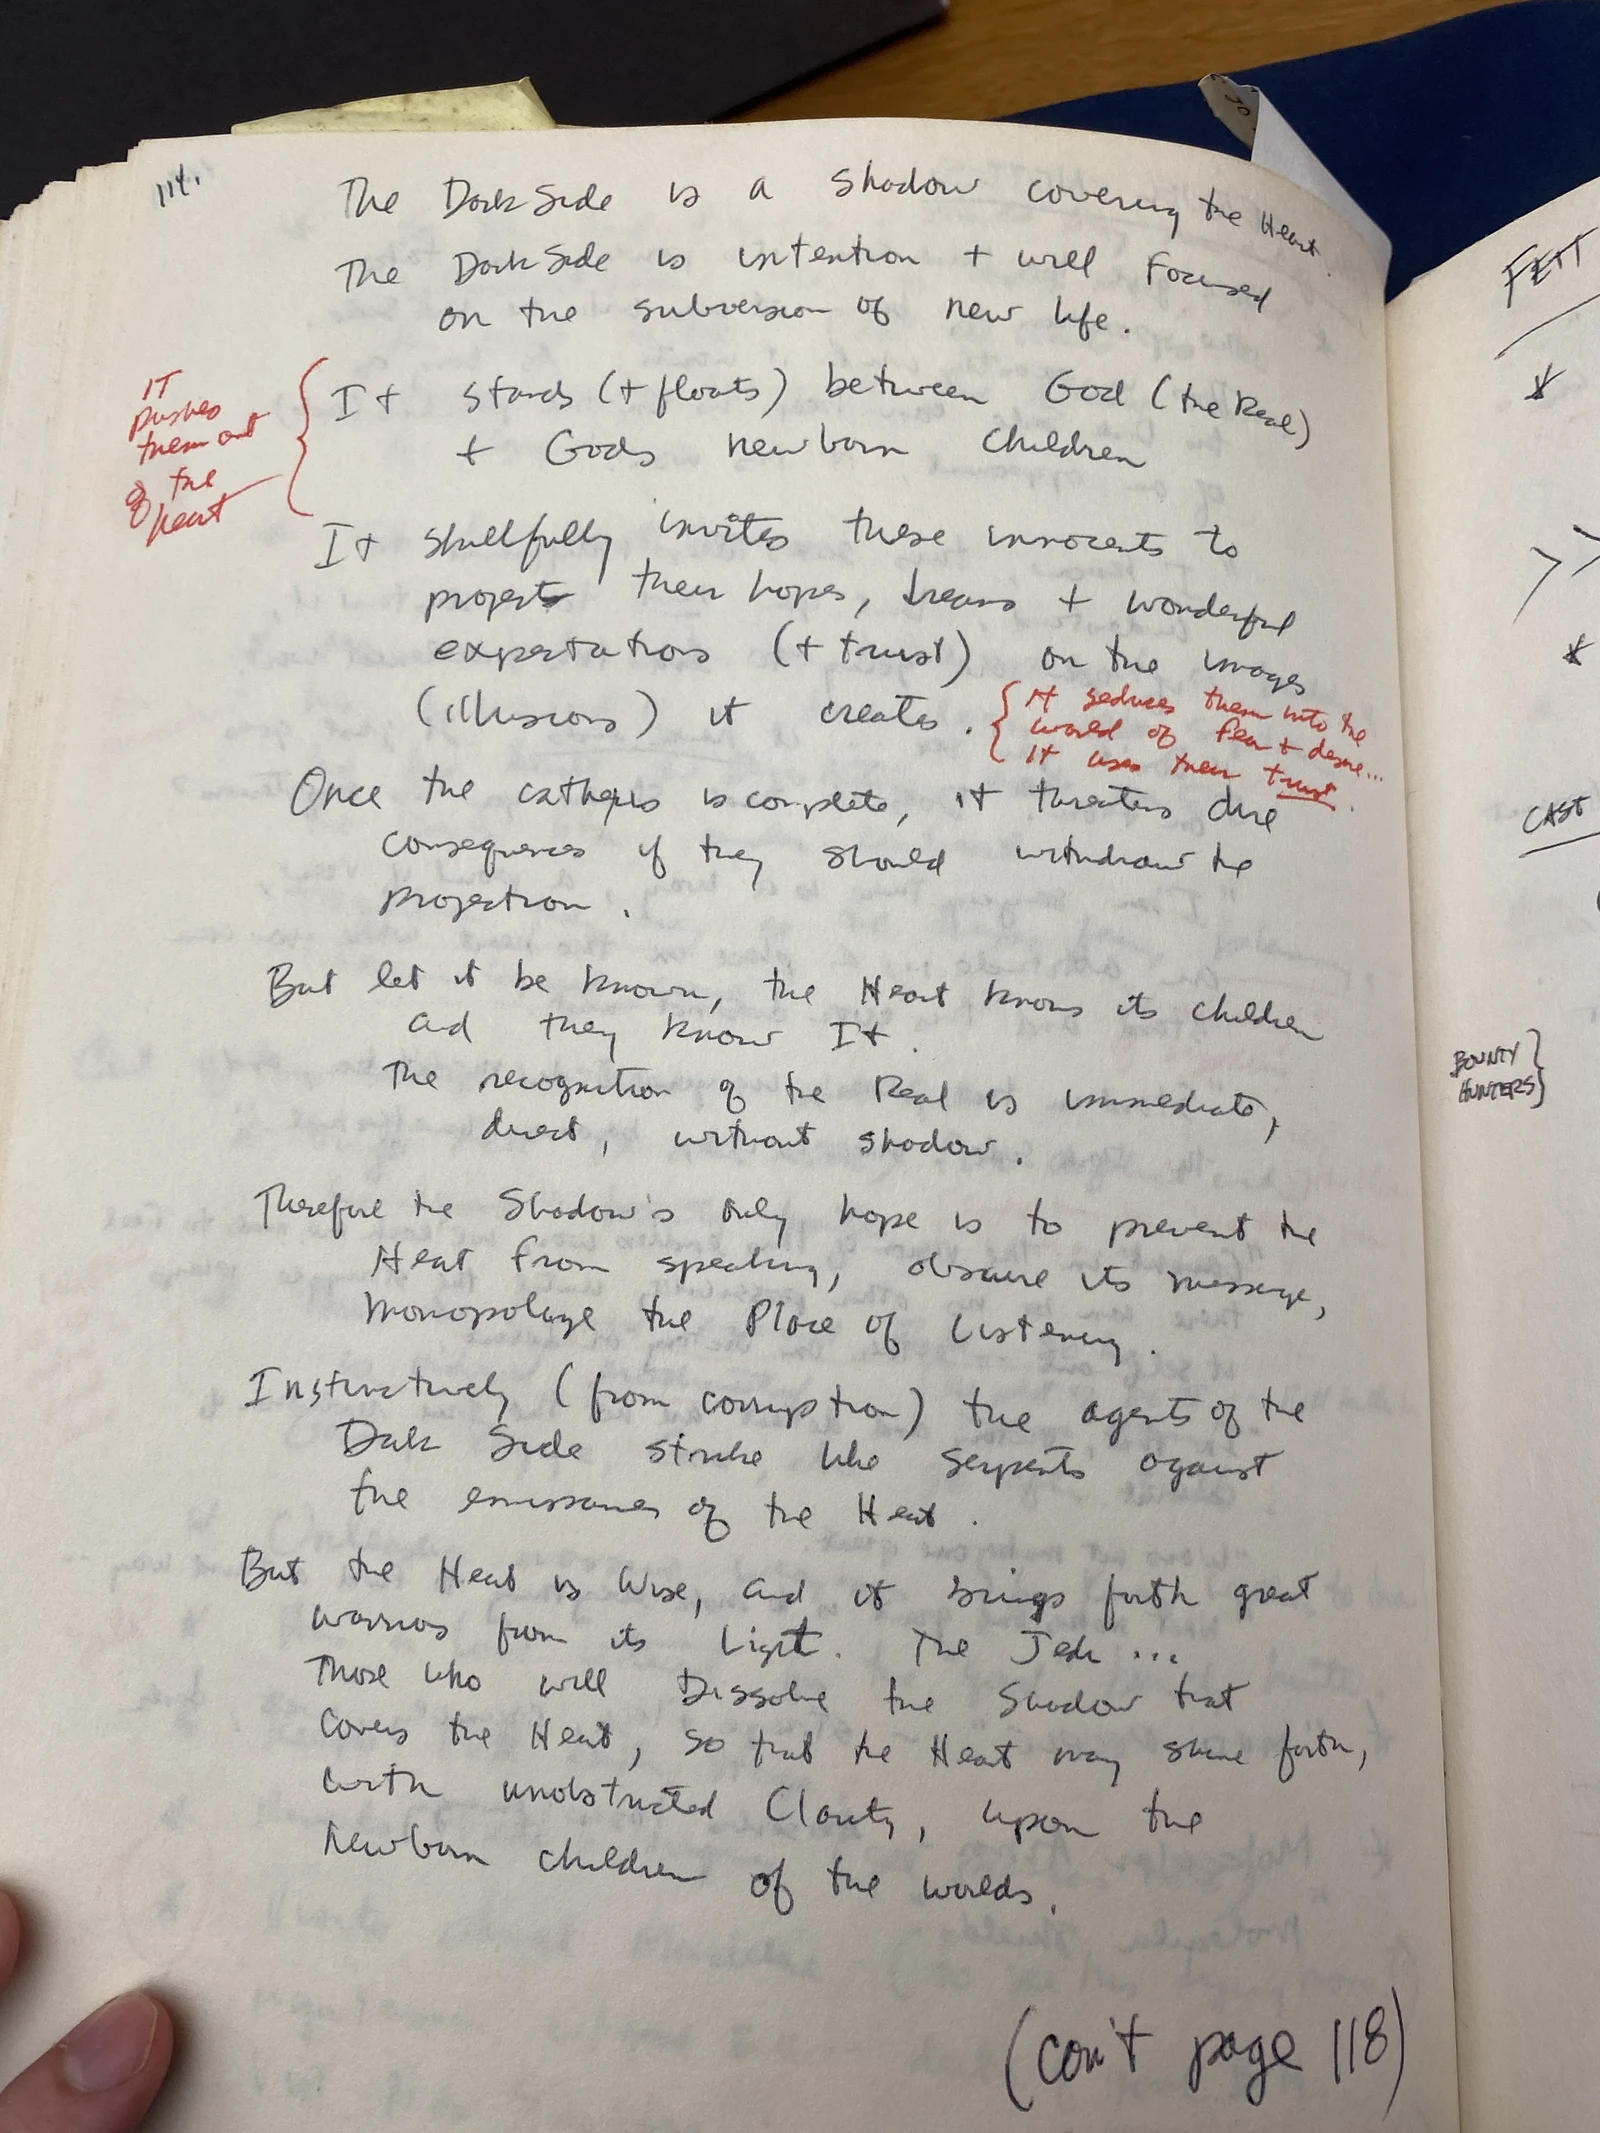 114.
The Dark Side is a Shadow covering the Heart.
The Dark Side is intention + will Focused
on the subversion of new life.
It stands (+ floats) between God (the Real)
+ Gods newborn children
IT
pushes
them out
of the
heart
It skillfully invites these innocents to
project their hopes, dreams + wonderful
expectations (+ trust) on the images
(illusions) it creates.
It seduces them into the
world of fear + desire...
It uses their trust.
Once the cathexis is complete, it threatens dire
consequences if they should withdraw the
projection.
But let it be known, the Heart knows its children
and they know It.
The recognition of the Real is immediate,
direct, without shadow.
Therefore the Shadow's only hope is to prevent the
Heart from speaking, obscure its message,
monopolize the Place of Listening.
Instinctively (from corruption) the agents of the
Dark Side strike like serpents against
the emissaries of the Heart.
But the Heart is Wise, and it brings forth great
warriors from its Light. The Jedi ...
Those who will Dissolve the Shadow that
covers the Heart, so that the Heart may shine forth,
with unobstructed Clarity, upon the
newborn children of the worlds.
(con't page 118)
FETT
*
*
CAST
BOUNTY
HUNTERS